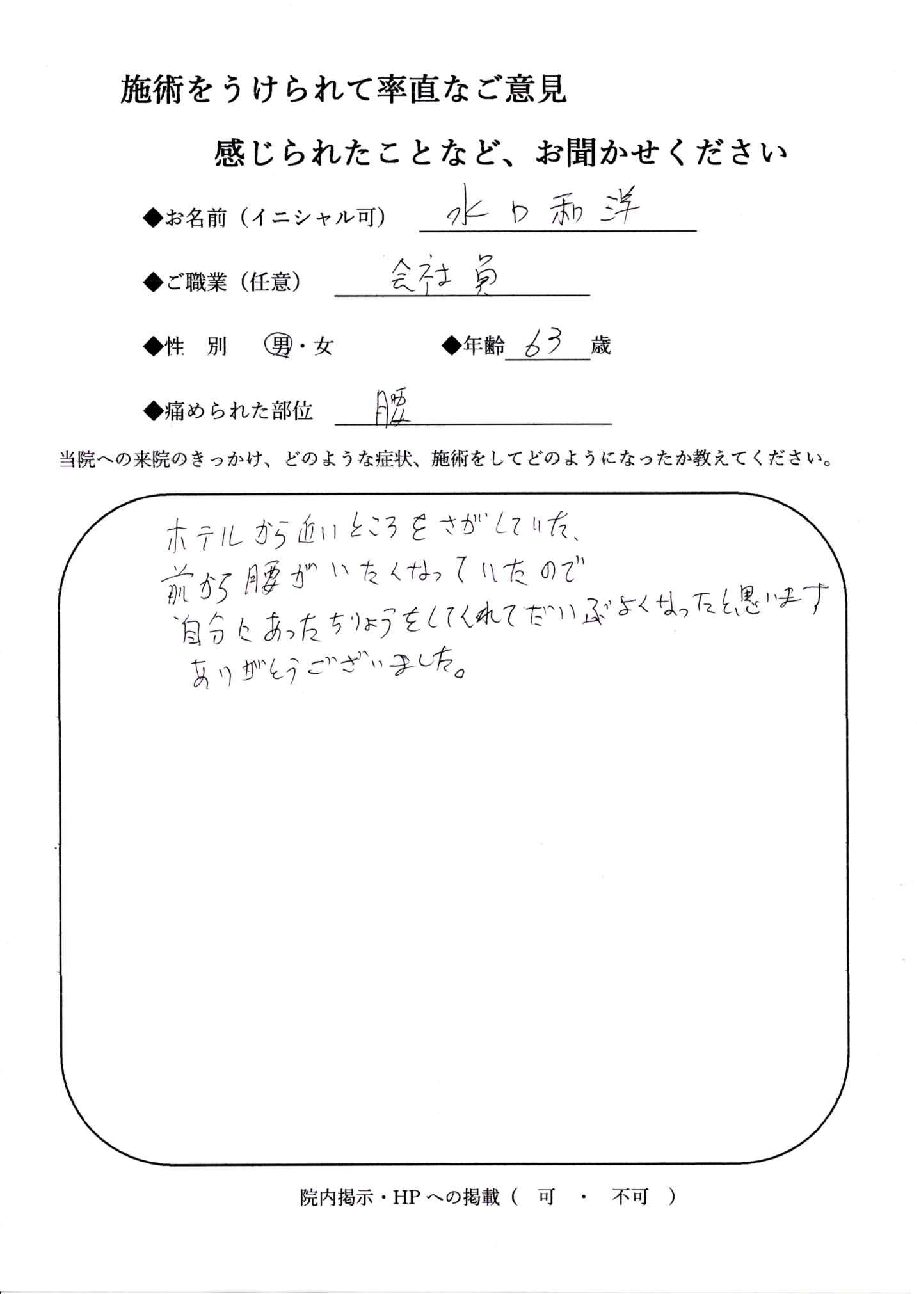 施術をうけられて率直なご意見
感じられたことなど、お聞かせください
◆お名前（イニシャル可） 水口和洋
◆ご職業（任意） 会社員
◆性 別 男・女 ◆年齢 63 歳
◆痛められた部位 腰
当院への来院のきっかけ、どのような症状、施術をしてどのようになったか教えてください。
ホテルから近いところをさがしていた、
前から腰がいたくなっていたので
自分にあったちりょうをしてくれてだいぶよくなったと思います
ありがとうございました。
院内掲示・HPへの掲載（ 可 ・ 不可 ）